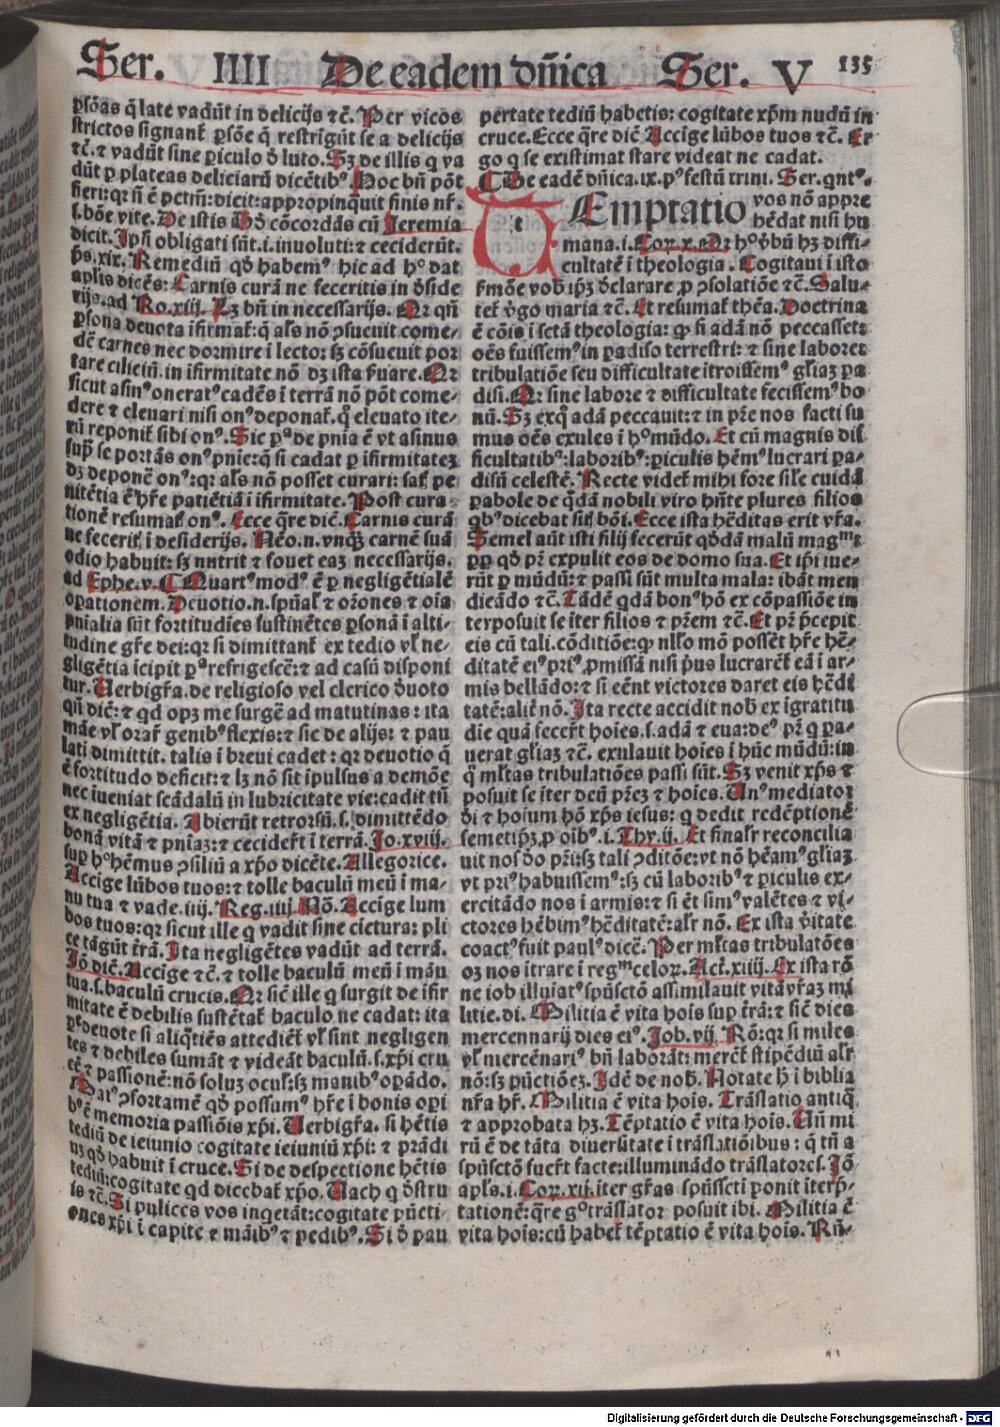 Ser. IIII De eadem dñica Ser. V 135
ꝑsõas q̃ late vadũt in delicijs ⁊c̃. Per vicos
strictos signant̃ ꝑsõe q̃ restrigũt se a delicijs
⁊c̃. ⁊ vadũt sine ꝑiculo ⁊ luto. Sꝫ de illis q va
dũt ꝑ plateas deliciarũ dicẽtibꝰ. Hoc bñ põt
fieri: qꝛ ñ ẽ petrm̃: dicit: appropinquit finis nr̃.
s. bõe vite. De istis ⁊ cõcordãs cũ Jeremia
dicit. Ipsi obligati sũt. i. inuoluti: ⁊ ceciderũt.
ps. xix. Remediũ qð habemꝰ hic ad hᵒ dat
apl̃us dicẽs: Carnis curã ne feceritis in ðside
rijs. ad Ro. xiij. Hꝫ bñ in necessarijs. Qꝛ qñ
ꝑsona deuota ifirmat̃: q̃ al̃s nõ ɔsueuit come-
dẽ carnes nec dormire i lecto: sꝫ cõsueuit por
tare ciliciũ. in ifirmitate nõ dꝫ ista ẜuare. Qꝛ
sicut asinꝰ oneratꝰ cadẽs ĩ terrã nõ põt come-
dere ⁊ eleuari nisi onꝰ deponat̃. q̃ eleuato ite-
rũ reponit̃ sibi onꝰ. Sic pᵃ de pnia ẽ vt asinus
suꝑ se portãs onꝰ pnie: q̃ si cadat ꝑ ifirmitateꝫ
dꝫ deponẽ onꝰ: qꝛ al̃s nõ posset curari: sat̃ pe
nitẽtia ẽ hr̃e patiẽtiã i ifirmitate. Post cura
tionẽ resumat̃ onꝰ. Ecce q̃re dic̃. Carnis curã
ne fecerit̃ i desiderijs. Nẽo. n. vnqꝫ carnẽ suã
odio habuit: sꝫ nutrit ⁊ fouet eaꝫ necessarijs.
ad Ephe. v. ¶ Quartꝰ modꝰ ẽ ꝑ negligẽtialẽ
oꝑationem. Deuotio. n. spũal̃ ⁊ or̃ones ⁊ oĩa
pnialia sũt fortitudĩes sustinẽtes ꝑsonã i alti-
tudine gr̃e dei: qꝛ si dimittant̃ ex tedio vl̃ ne-
gligẽtia icipit pᵃ refrigescẽ: ⁊ ad casũ disponi
tur. Uerbigr̃a. de religioso vel clerico ðuoto
qñ dic̃: ⁊ qd opꝫ me surgẽ ad matutinas: ita
mãe vl̃ orar̃ genibꝰ flexis: ⁊ sic de alijs: ⁊ pau
lati dimittit. talis i breui cadet: qꝛ deuotio q̃
ẽ fortitudo deficit: ⁊ lꝫ nõ sit ipulsus a demõe
nec iueniat scãdalũ in lubricitate vie: cadit tñ
ex negligẽtia. Abierũt retrorsũ. s. dimittẽdo
bonã vitã ⁊ pniaꝫ: ⁊ cecidert̃ i terrã. Jo. xviij.
suꝑ hᵒ hẽmus ɔsiliũ a xp̃o dicẽte. Allegorice.
Accige lũbos tuos: ⁊ tolle baculũ meũ i ma-
nu tua ⁊ vade. iiij. Reg. iiij. Rõ. Accige lum
bos tuos: qꝛ sicut ille q vadit sine cictura: pli
ce tãgũt tr̃ã. Ita negligẽtes vadũt ad terrã.
Jõ dic̃. Accige ⁊c̃. ⁊ tolle baculũ meũ i mãu
tua. s. baculũ crucis. Qꝛ sic̃ ille q surgit de ifir
mitate ẽ debilis sustẽtat̃ baculo ne cadat: ita
pᵉ deuote si aliqñtiẽs attedict̃ vl̃ sint negligen
tes ⁊ debiles sumãt ⁊ videãt baculũ. s. xp̃i cru
cẽ ⁊ passionẽ: nõ soluꝫ ocul̃: sꝫ manibꝰ oꝑãdo.
ɔfortamẽ qð possumꝰ hr̃e i bonis oꝑi
bꝰ ẽ memoria passiõis xp̃i. Uerbigr̃a. si hẽtis
tediũ de ieiunio cogitate ieiuniũ xp̃i: ⁊ prãdi
uꝫ qð habuit ĩ cruce. Si de despectione hẽtis
tediũ: cogitate qd dicebat̃ xp̃o. Uach q ðstru
is ⁊c̃. Si pulices vos inq̃etãt: cogitate pũcti-
ones xp̃i i capite ⁊ mãibꝰ ⁊ pedibꝰ. Si ð pau
pertate tediũ habetis: cogitate xp̃m nudũ in
cruce. Ecce q̃re dic̃ Accige lũbos tuos ⁊c̃. Er
go q se existimat stare videat ne cadat.
¶ De eadẽ dñica. ix. pᵒ festũ trini. Ser. qntꝰ.
TEmptatio vos nõ appre
hẽdat nisi hu
mana. i. Coꝝ. x. Qꝛ hᵒ ꝟbũ hꝫ diffi-
cultatẽ i theologia. Cogitaui ĩ isto
ẜmõe vob̃ ip̃ꝫ ðclarare ꝓ ɔsolatiõe ⁊c̃. Salu-
tet̃ ꝟgo maria ⁊c̃. Et resumat̃ thẽa. Doctrina
ẽ cõis i sctã theologia: ꝙ si adã nõ peccasset:
oẽs fuissemꝰ in ꝑadiso terrestri: ⁊ sine labore:
tribulatiõe seu difficultate itroissemꝰ gl̃iaꝫ pa
disi. Qꝛ sine labore ⁊ difficultate fecissemꝰ bo
nũ. Sꝫ exq̃ adã peccauit: ⁊ in pr̃e nos facti su
mus oẽs exules i hᵒ mũdo. Et cũ magnis dif
ficultatibꝰ: laboribꝰ: ꝑiculis hẽmꝰ lucrari pa-
disũ celestẽ. Recte videt̃ mihi fore sil̃e cuidã
ꝑabole de q̃dã nobili viro hñte plures filios
qbꝰ dicebat sit̃ bõi. Ecce ista hẽditas erit vr̃a.
Semel aũt isti filij fecerũt qðdã malũ magᵐ:
ꝓp qð pr̃ expulit eos de domo sua. Et ip̃i iue-
rũt ꝑ mũdũ: ⁊ passi sũt multa mala: ibãt men
dicãdo ⁊c̃. Tãdẽ qdã bonꝰ hõ ex cõpassiõe in
terposuit se iter filios ⁊ pr̃em ⁊c̃. Et pr̃ p̃cepit
eis cũ tali. cõditiõe: ꝙ nl̃lo mõ possẽt hr̃e hẽ-
ditatẽ eiꝰ priꝰ ꝓmissã nisi pꝰus lucrarẽt̃ eã i ar-
mis bellãdo: ⁊ si eẽnt victores daret eis hẽdi
tatẽ: alit̃ nõ. Ita recte accidit nob̃ ex igratitu
die quã fecert̃ hoies. s. adã ⁊ eua: deꝰ pr̃ q pa-
uerat gl̃iaꝫ ⁊c̃. exulauit hoies ĩ hũc mũdũ: in
q̃ ml̃tas tribulatiões passi sũt. Sꝫ venit xp̃s ⁊
posuit se iter deũ pr̃eꝫ ⁊ hoies. Unꝰ mediator
ði ⁊ hoium hõ xp̃s iesus: q dedit redẽptionẽ
semetip̃ꝫ ꝓ oibꝰ. i. Thy. ij. Et finalr̃ reconcilia
uit nos ðo pr̃i: sꝫ tali ɔditõe: vt nõ hẽamꝰ gl̃iaꝫ
vt priꝰ habuissemꝰ: sꝫ cũ laboribꝰ ⁊ ꝑiculis ex-
ercitãdo nos i armis: ⁊ si ẽt simꝰ valẽtes ⁊ vi-
ctores hẽbimꝰ hẽditatẽ: al̃r nõ. Ex ista ꝟitate
coactꝰ fuit paulꝰ dicẽ. Per ml̃tas tribulatões
oꝫ nos itrare i regᵐ celoꝝ. Act. xiiij. Ex ista rõ
ne iob illuĩatꝰ spũsctõ assimilauit vitã nr̃aꝫ mi
litie. di. Militia ẽ vita hois suꝑ tr̃ã: ⁊ sic̃ dies
mercennarij dies eiꝰ. Job. vij. Rõ: qꝛ si miles
vl̃ mercẽnariꝰ bñ laborãt: mercẽt̃ stipẽdiũ al̃r
nõ: sꝫ pũctiõeꝫ. Idẽ de nob̃. Notate h̃ i biblia
nr̃a hr̃. Militia ẽ vita hois. Trãslatio antiq̃
⁊ approbata hꝫ. Tẽptatio ẽ vita hois. Uñ mi
rũ ẽ de tãta diuersitate i trãslatiõibus: q̃ tñ a
spũsctõ fuert̃ facte: illuminãdo trãslatores. Jõ
apl̃s. i. Coꝝ. xij. iter gr̃as spũssct̃i ponit iterp̃-
tationẽ: q̃re gᵒ trãslator posuit ibi. Militia ẽ
vita hois: cũ habet̃ tẽptatio ẽ vita hois. Rñ-
Digitalisierung gefördert durch die Deutsche Forschungsgemeinschaft - DFG